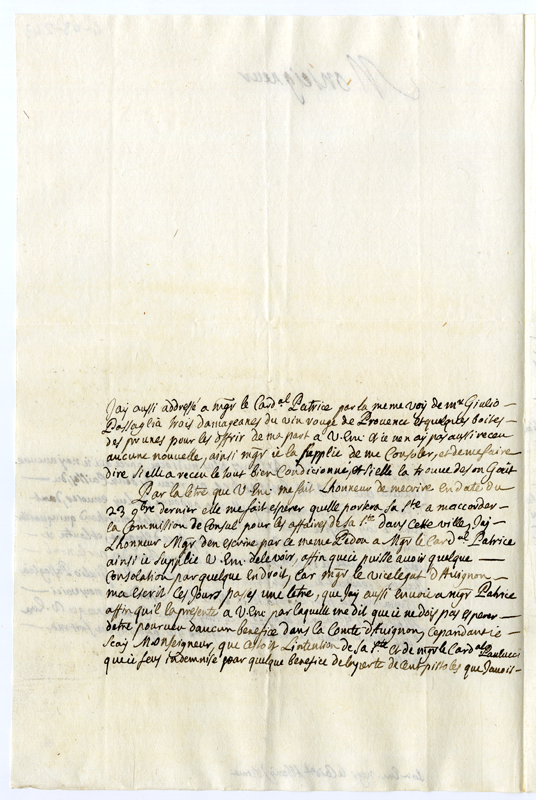 Jaÿ aussi addressé a mgr le Card.al Patrice par la meme voÿ de mr. Giulio
Passaglia trois damajeanes du vin rouge de Provence et quelques boites
des prunes pour les offrir de ma part a V. Em: et ie nen aÿ pas aussi receu
aucune nouvelle, ainsi mgr ie la supplie de me Consoler, et de me faire
dire si ell'a receu le tout bien Conditionné, et si elle la trouvé de son Goût
Par la letre que V. Em: me fait Lhonneur de mecrire en date du
23 9bre dernier elle me fait esperer quelle portera sa S.te a maccorder
la Commission de Consul pour les affaires de sa S.te dans cette ville, Jaÿ
Lhonneur Mgr den escrire par ce meme Pedon a Mgr le Card.al Patrice
ainsi ie supplie V. Em: de le voir, affin que ie puisse avoir quelque
Consolation par quelque endroit, Car mgr le vicelegat d'Avignon
ma escrit ces Jours passes une letre, que Jaÿ aussi envoié a mgr Patrice
affin qu'il la presente a V. Em: par laquelle me dit que ie ne dois pas esperer
detre pourveu daucun benefice dans la Comté d'Avignon, cepandant ie
scaÿ Monseigneur, que c'estoit L'intention de sa S.té et de mgr le Card.al Paulucci
que ie feus indemnisé par quelque benefice de la perte de cent pistoles que Javois
Monseigneur